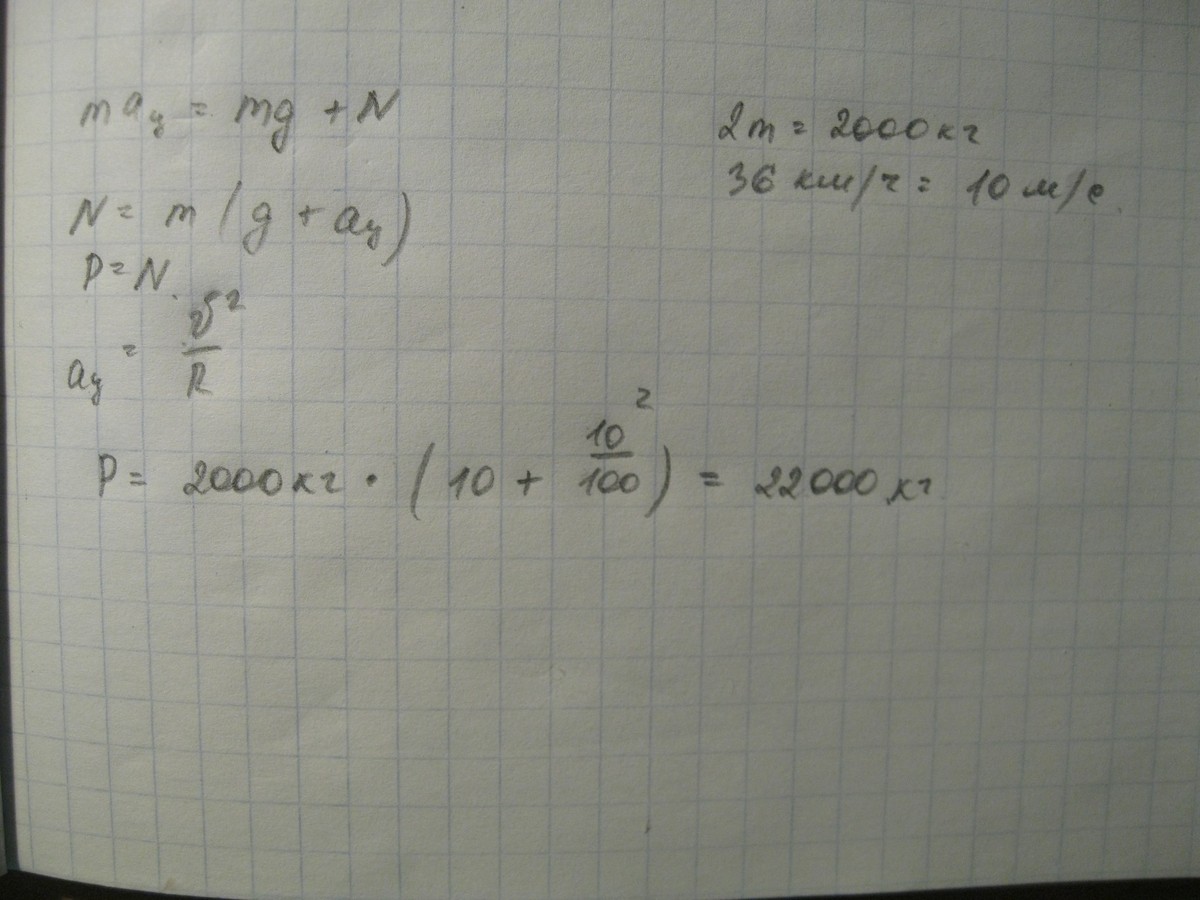 maц = mg + N
2т = 2000кг
36 км/ч = 10 м/с.
N = m (g + aц)
P = N.
aц = v²/R
P = 2000кг · (10 + 10²/100) = 22000кг